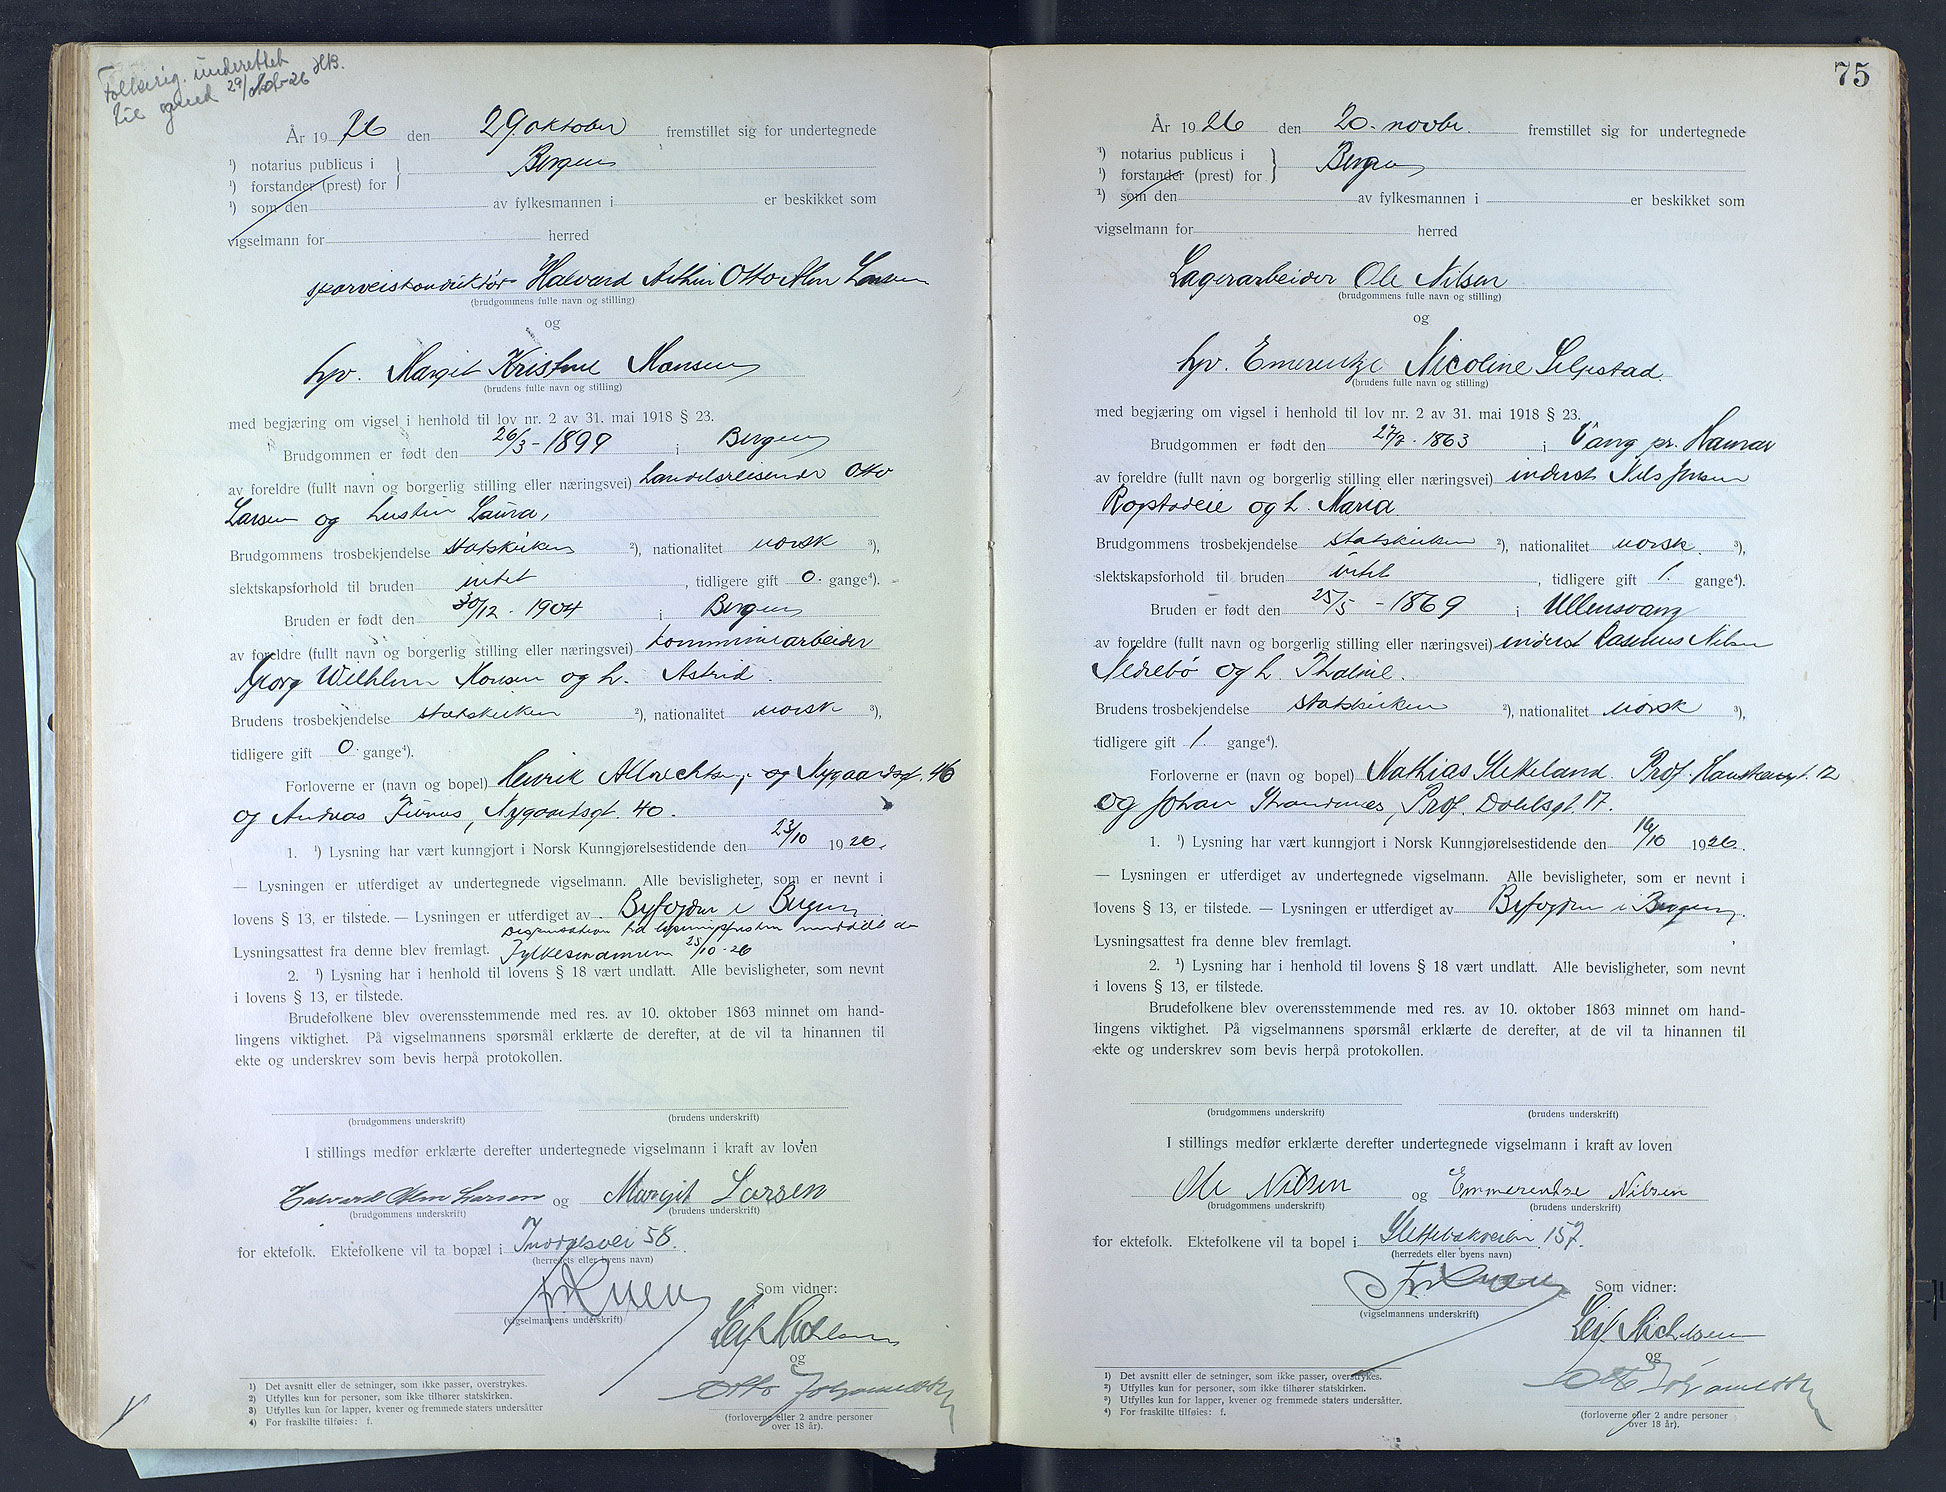 Folkereg. underettet
til og med 29/okt-26 HB.
År 1926 den 29 oktober fremstillet sig for undertegnede
¹) notarius publicus i } Bergen
¹) forstander (prest) for
¹) som den av fylkesmannen i er beskikket som
vigselmann for herred
sporveiskonduktør Halvard Arthur Otto Alm Larsen
(brudgommens fulle navn og stilling)
og
hpv. Margit Kristine Monsen
(brudens fulle navn og stilling)
med begjæring om vigsel i henhold til lov nr. 2 av 31. mai 1918 § 23.
Brudgommen er født den 26/3-1899 i Bergen
av foreldre (fullt navn og borgerlig stilling eller næringsvei) handelsreisende Otto
Larsen og hustru Laura,
Brudgommens trosbekjendelse statskirken ²), nationalitet norsk ³),
slektskapsforhold til bruden intet , tidligere gift 0. gange⁴).
Bruden er født den 30/12-1904 i Bergen
av foreldre (fullt navn og borgerlig stilling eller næringsvei) kommunearbeider
Georg Wilhelm Monsen og h. Astrid.
Brudens trosbekjendelse statskirken ²), nationalitet norsk ³),
tidligere gift 0. gange⁴).
Forloverne er (navn og bopel) Henrik Albrechtsen, og Nygaardsgt. 46
og Andreas Nygaardsgt. 40.
1. ¹) Lysning har vært kunngjort i Norsk Kunngjørelsestidende den 23/10 1926.
— Lysningen er utferdiget av undertegnede vigselmann. Alle bevisligheter, som er nevnt i
lovens § 13, er tilstede. — Lysningen er utferdiget av Byfogden i Bergen
Dispensation fra lysningsfristen meddelt av
Lysningsattest fra denne blev fremlagt. Fylkesmannen 25/10-26
2. ¹) Lysning har i henhold til lovens § 18 vært undlatt. Alle bevisligheter, som nevnt
i lovens § 13, er tilstede.
Brudefolkene blev overensstemmende med res. av 10. oktober 1863 minnet om hand-
lingens viktighet. På vigselmannens spørsmål erklærte de derefter, at de vil ta hinannen til
ekte og underskrev som bevis herpå protokollen.
(brudgommens underskrift) (brudens underskrift)
I stillings medfør erklærte derefter undertegnede vigselmann i kraft av loven
Halvard Alm Larsen og Margit Larsen
(brudgommens underskrift) (brudens underskrift)
for ektefolk. Ektefolkene vil ta bopæl i 58.
(herredets eller byens navn)
Som vidner:
(vigselmannens underskrift)
Leif Michelsen
og
Otto Johannessen
(forloverne eller 2 andre personer
over 18 år).
1) Det avsnitt eller de setninger, som ikke passer, overstrykes.
2) Utfylles kun for personer, som ikke tilhører statskirken.
3) Utfylles kun for lapper, kvener og fremmede staters undersåtter
4) For fraskilte tilføies: f.
75
År 1926 den 20. novbr. fremstillet sig for undertegnede
¹) notarius publicus i } Bergen
¹) forstander (prest) for
¹) som den av fylkesmannen i er beskikket som
vigselmann for herred
Lagerarbeider Ole Nilsen
(brudgommens fulle navn og stilling)
og
hpv. Emerentze Nicoline Seljestad.
(brudens fulle navn og stilling)
med begjæring om vigsel i henhold til lov nr. 2 av 31. mai 1918 § 23.
Brudgommen er født den 27/7-1863 i Vang pr. Hamar
av foreldre (fullt navn og borgerlig stilling eller næringsvei) inderst Nils Jensen
Ropstadeie og h. Maria.
Brudgommens trosbekjendelse statskirken ²), nationalitet norsk. ³),
slektskapsforhold til bruden intet , tidligere gift 1. gange⁴).
Bruden er født den 25/5-1869 i Ullensvang
av foreldre (fullt navn og borgerlig stilling eller næringsvei) inderst Rasmus Nilsen
Nedrebø og h. Thaline.
Brudens trosbekjendelse statskirken ²), nationalitet norsk ³),
tidligere gift 1. gange⁴).
Forloverne er (navn og bopel) Mathias Slekeland. Prof. Hansteensgt. 12
og Johan Strandenæs, Prof. Dahlsgt. 17.
1. ¹) Lysning har vært kunngjort i Norsk Kunngjørelsestidende den 16/10 1926.
— Lysningen er utferdiget av undertegnede vigselmann. Alle bevisligheter, som er nevnt i
lovens § 13, er tilstede. — Lysningen er utferdiget av Byfogden i Bergen.
Lysningsattest fra denne blev fremlagt.
2. ¹) Lysning har i henhold til lovens § 18 vært undlatt. Alle bevisligheter, som nevnt
i lovens § 13, er tilstede.
Brudefolkene blev overensstemmende med res. av 10. oktober 1863 minnet om hand-
lingens viktighet. På vigselmannens spørsmål erklærte de derefter, at de vil ta hinannen til
ekte og underskrev som bevis herpå protokollen.
(brudgommens underskrift) (brudens underskrift)
I stillings medfør erklærte derefter undertegnede vigselmann i kraft av loven
Ole Nilsen og Emmerendse Nilsen
(brudgommens underskrift) (brudens underskrift)
for ektefolk. Ektefolkene vil ta bopel i Slettebakveien 157.
(herredets eller byens navn)
Som vidner:
(vigselmannens underskrift)
Leif Michelsen
og
Otto Johannessen
(forloverne eller 2 andre personer
over 18 år).
¹) Det avsnitt eller de setninger, som ikke passer, overstrykes.
²) Utfylles kun for personer, som ikke tilhører statskirken.
³) Utfylles kun for lapper, kvener og fremmede staters undersåtter.
⁴) For fraskilte tilføies: f.